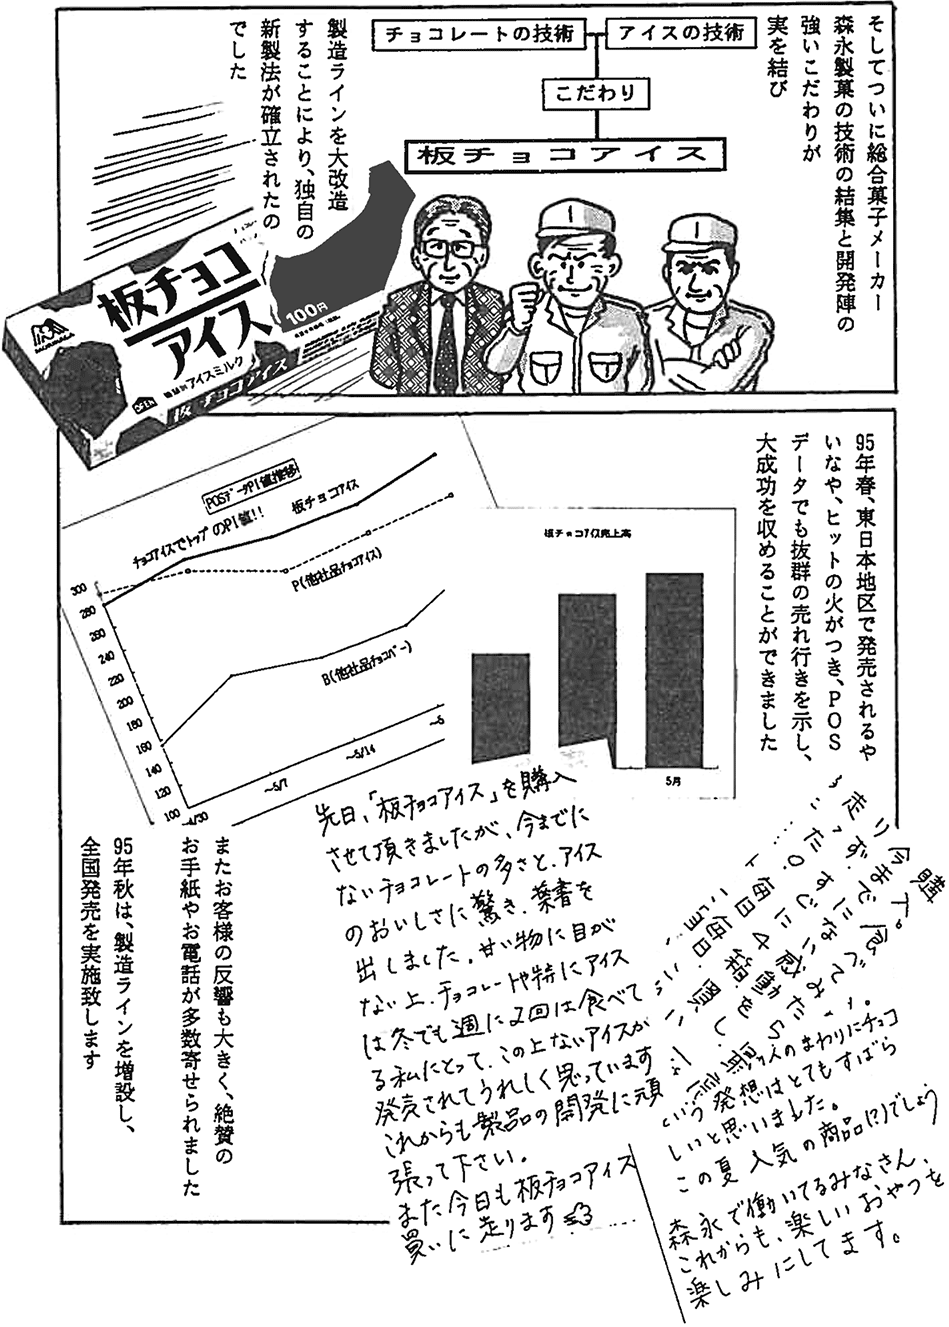 そしてついに総合菓子メーカー
森永製菓の技術の結集と開発陣の
強いこだわりが
実を結び
チョコレートの技術
アイスの技術
こだわり
板チョコアイス
製造ラインを大改造
することにより、独自の
新製法が確立されたの
でした
MORINAGA
板チョコ
アイス
100円
種類別アイスミルク
OPEN
板チョコアイス
95年春、東日本地区で発売されるや
いなや、ヒットの火がつき、POS
データでも抜群の売れ行きを示し、
大成功を収めることができました
POSデータPI値推移
チョコアイスでトップのPI値!!
板チョコアイス
P(他社品チョコアイス)
B(他社品チョコバー)
300
280
260
240
220
200
180
160
140
120
100
4/30
～5/7
～5/14
板チョコアイス売上高
5月
またお客様の反響も大きく、絶賛の
お手紙やお電話が多数寄せられました
95年秋は、製造ラインを増設し、
全国発売を実施致します
先日、「板チョコアイス」を購入
させて頂きましたが、今までに
ないチョコレートの多さと、アイス
のおいしさに驚き、葉書を
出しました。甘い物に目が
ない上、チョコレートや特にアイス
は冬でも週に2回は食べて
る私にとって、この上ないアイスが
発売されてうれしく思っています
これからも製品の開発に頑
張って下さい。
また今日も板チョコアイス
買いに走ります
のまわりにチョコ
いう発想はとてもすばら
しいと思いました。
この夏人気の商品に!!でしょう
森永で働いてるみなさん、
これからも、楽しいおやつを
楽しみにしてます。